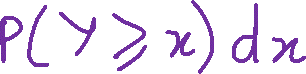 P(Y ⩾ x) dx